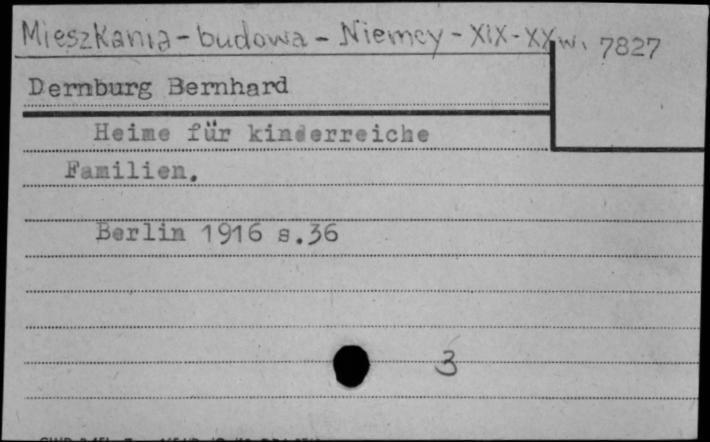 Mieszkania - budowa - Niemcy - XIX - XX w. 7827
Dernburg Bernhard
Heime für kinderreiche
Familien.
Berlin 1916 s.36
3